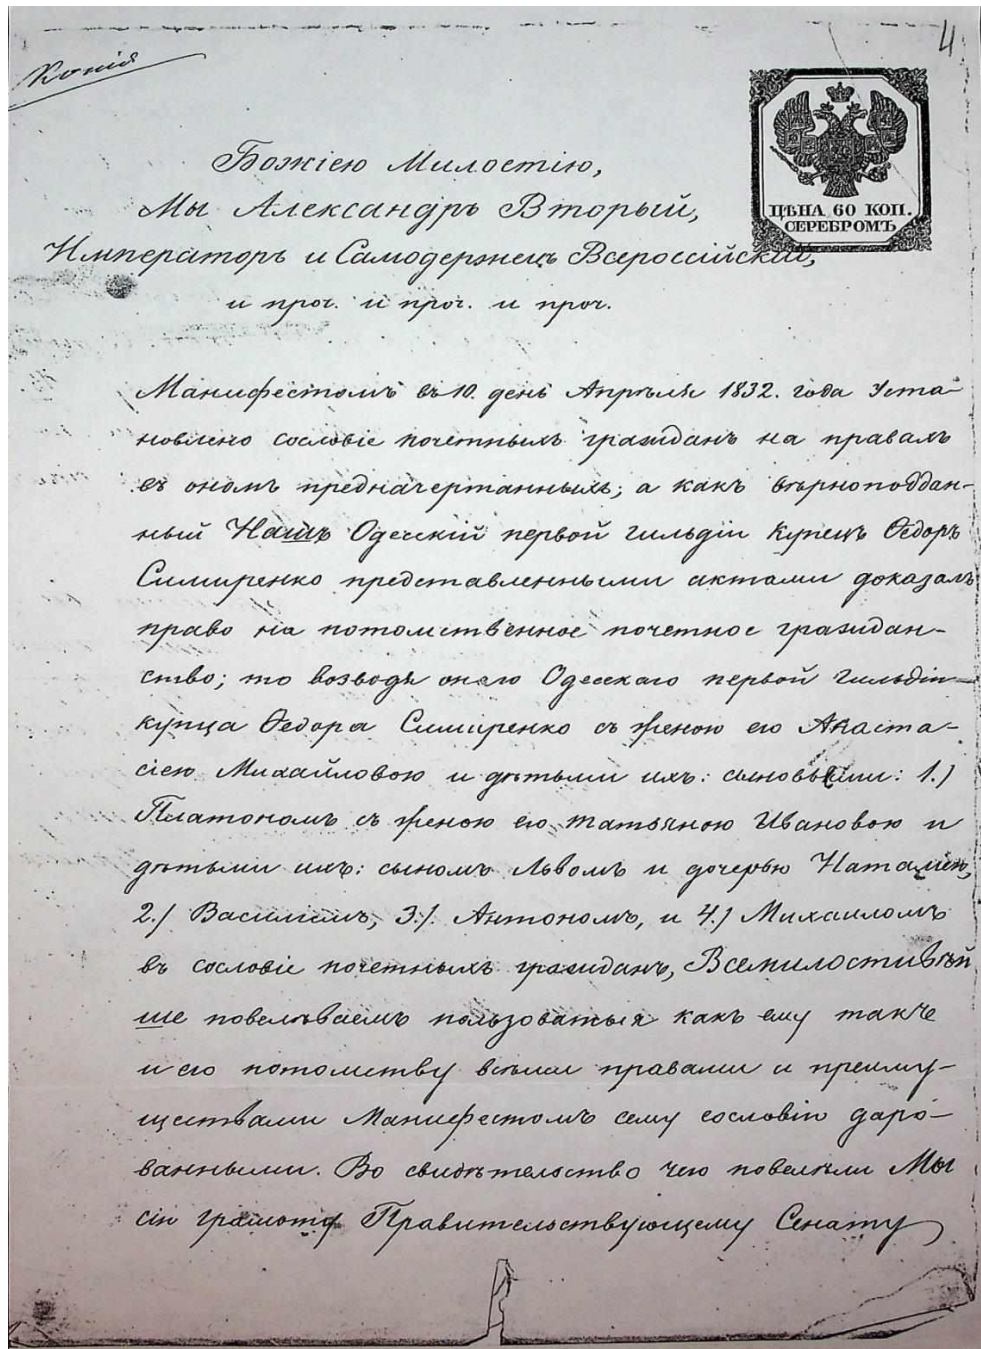 4
Копія
ЦѢНА 60 КОП.
СЕРЕБРОМЪ
Божіею Милостію,
Мы Александръ Вторый,
Императоръ и Самодержецъ Всероссійскій,
и проч. и проч. и проч.
Манифестомъ въ 10. день Апрѣля 1832. года Уста-
новлено сословіе почетныхъ гражданъ на правахъ
въ ономъ предначертанныхъ; а какъ вѣрноподдан-
ный Нашъ Одесскій первой гильдіи Купецъ Ѳедоръ
Симиренко представленными актами доказалъ
право на потомственное почетное граждан-
ство; то возводя онаго Одесскаго первой Гильдіи
купца Ѳедора Симиренко съ женою его Анаста-
сіею Михайловою и дѣтьми ихъ: сыновьями: 1.)
Платономъ съ женою его Татьяною Ивановою и
дѣтьми ихъ: сыномъ Львомъ и дочерью Наталіею,
2.) Василіемъ, 3.) Антономъ, и 4.) Михаиломъ
въ сословіе почетныхъ гражданъ, Всемилостивѣй
ше повелѣваемъ пользоваться какъ ему такъ
и его потомству всѣми правами и преиму-
ществами Манифестомъ сему сословію даро-
ванными. Во свидѣтельство чего повелѣли Мы
сію грамоту Правительствующему Сенату